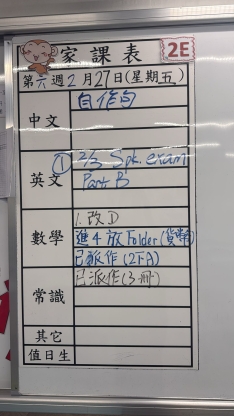 家課表
2E
第六週2月27日(星期五)
中文
自作句
英文
① 2/3 Spk. exam
Part B
數學
1. 改D
進4 放Folder(貨幣)
已派作(2下A)
常識
已派作(3冊)
其它
值日生